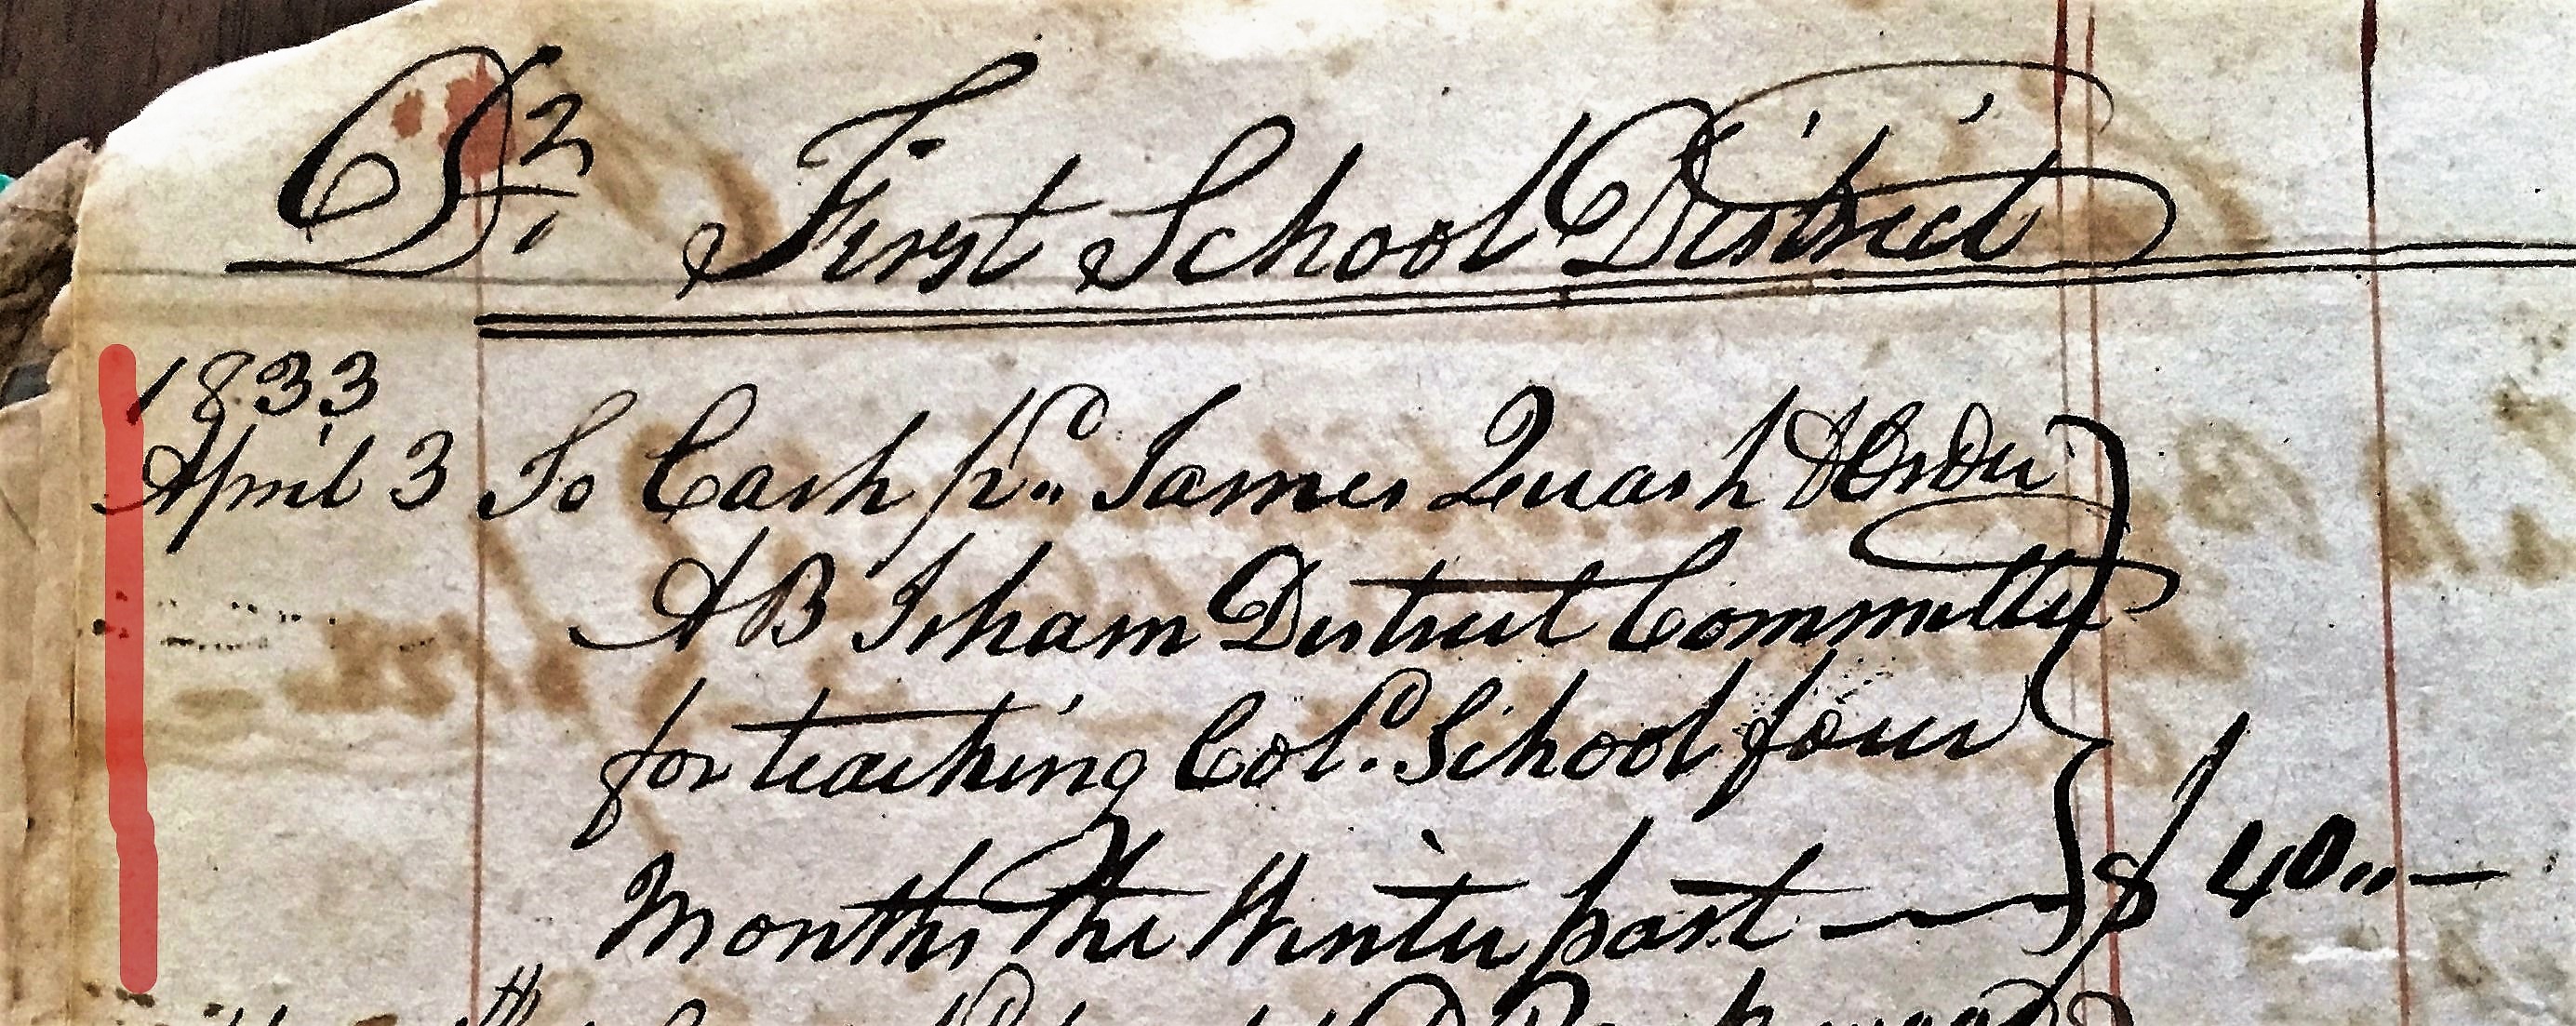 Dr. First School District
1833
April 3 To Cash pd.. James Quash & Order
A B Isham District Committee
for teaching Cold. School four
Months the Winter past — $ 40..—